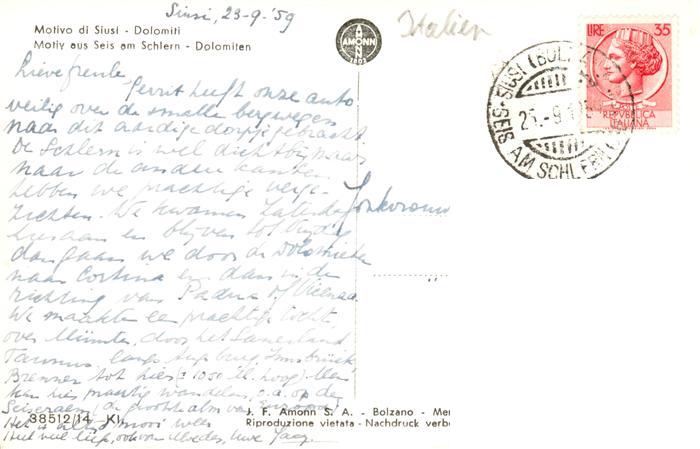 Siusi, 23-9-'59
Motivo di Siusi - Dolomiti
Motiv aus Seis am Schlern - Dolomiten
AMONN
Italien
LIRE 35
REPVBBLICA
ITALIANA
SIUSI (BOLZ
SEIS AM SCHLERN
Lieve
Gerrit heeft onze auto
veilig over de smalle bergwegen
naar dit aardige dorpje gebracht.
De Schlern is wel dichtbij maar
naar de andere kanten
hebben we prachtige verge-
zichten. We kwamen Zaterdag
hier aan en blijven tot Vrijdag
dan gaan we door de Dolomieten
naar Cortina en dan in de
richting van Padua of Vicenza.
We maakten een prachtige tocht,
over Münster, door het Sauerland
Taunus, langs Augsburg, Innsbrück,
Brenner tot hier (± 1050 M. hoog). Men
kan hier prachtig wandelen, o.a. op de
Seiseralm (de grootste alm van Europa)
Het is alles mooi weer
Heel veel liefs, ook van uwe
38512/14 Kl.
J. F. Amonn S. A. - Bolzano - Me
Riproduzione vietata - Nachdruck verb